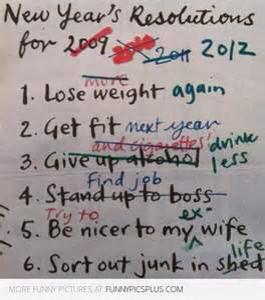 New Year's Resolutions
for 2009 2011 2012
more
1. Lose weight again
2. Get fit next year
and cigarettes! drink
3. Give up alcohol less
find job
4. Stand up to boss
Try to ex-
5. Be nicer to my wife
life
6. Sort out junk in shed
MORE FUNNY PICTURES ON | FUNNYPICSPLUS.COM